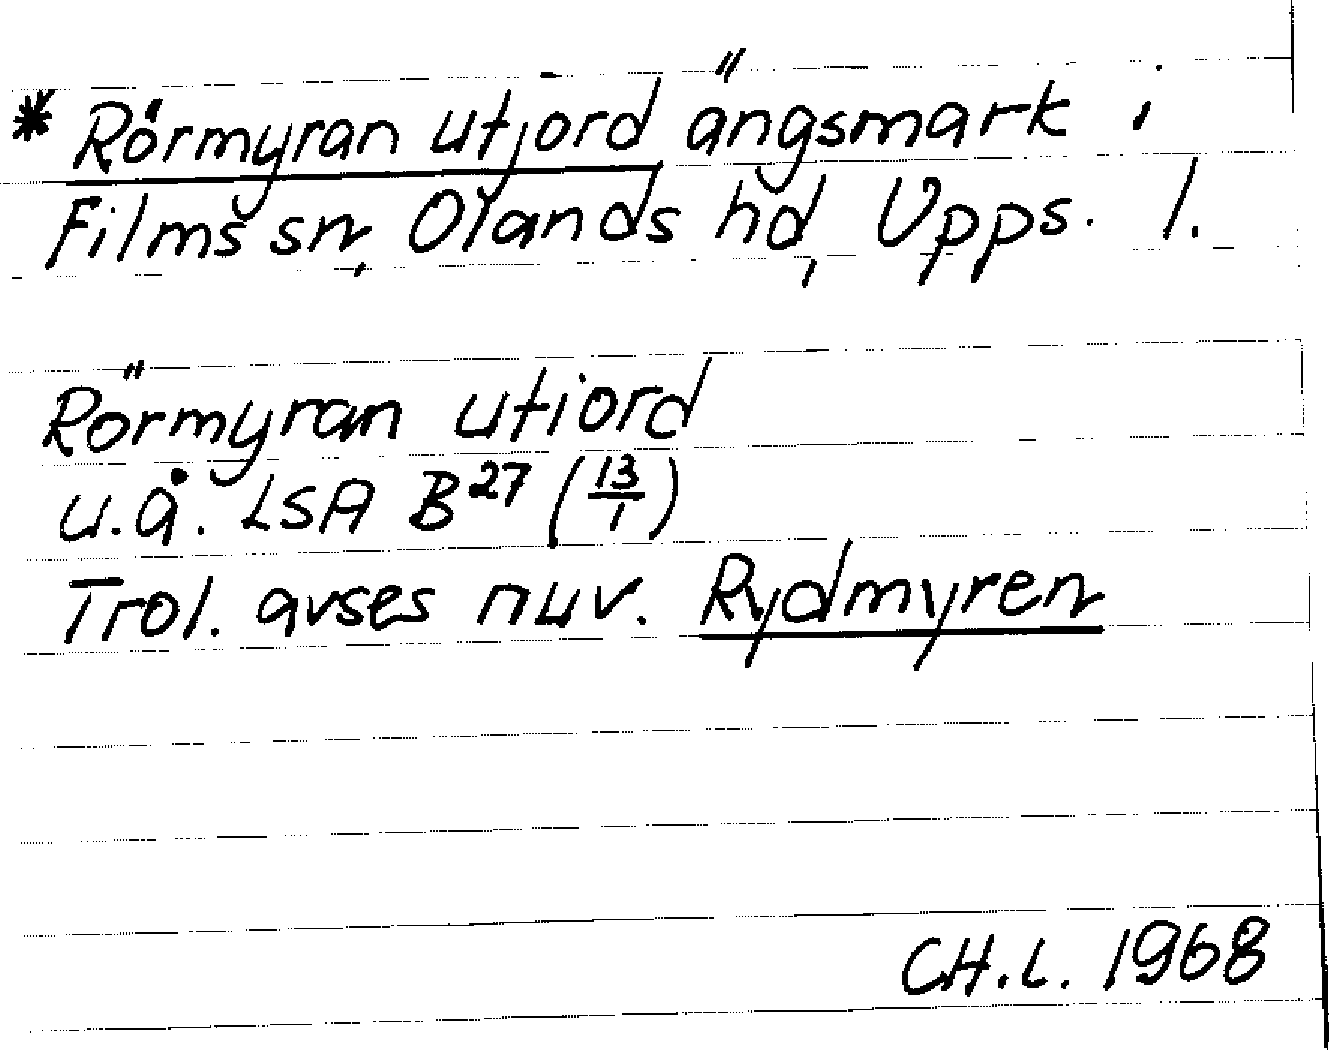 * Rörmyran utjord ängsmark i
Films sn, Olands hd, Upps. l.
Rörmyran utiord
u.å. LSA B²⁷ (13/1)
Trol. avses nuv. Rydmyren
CH.L. 1968